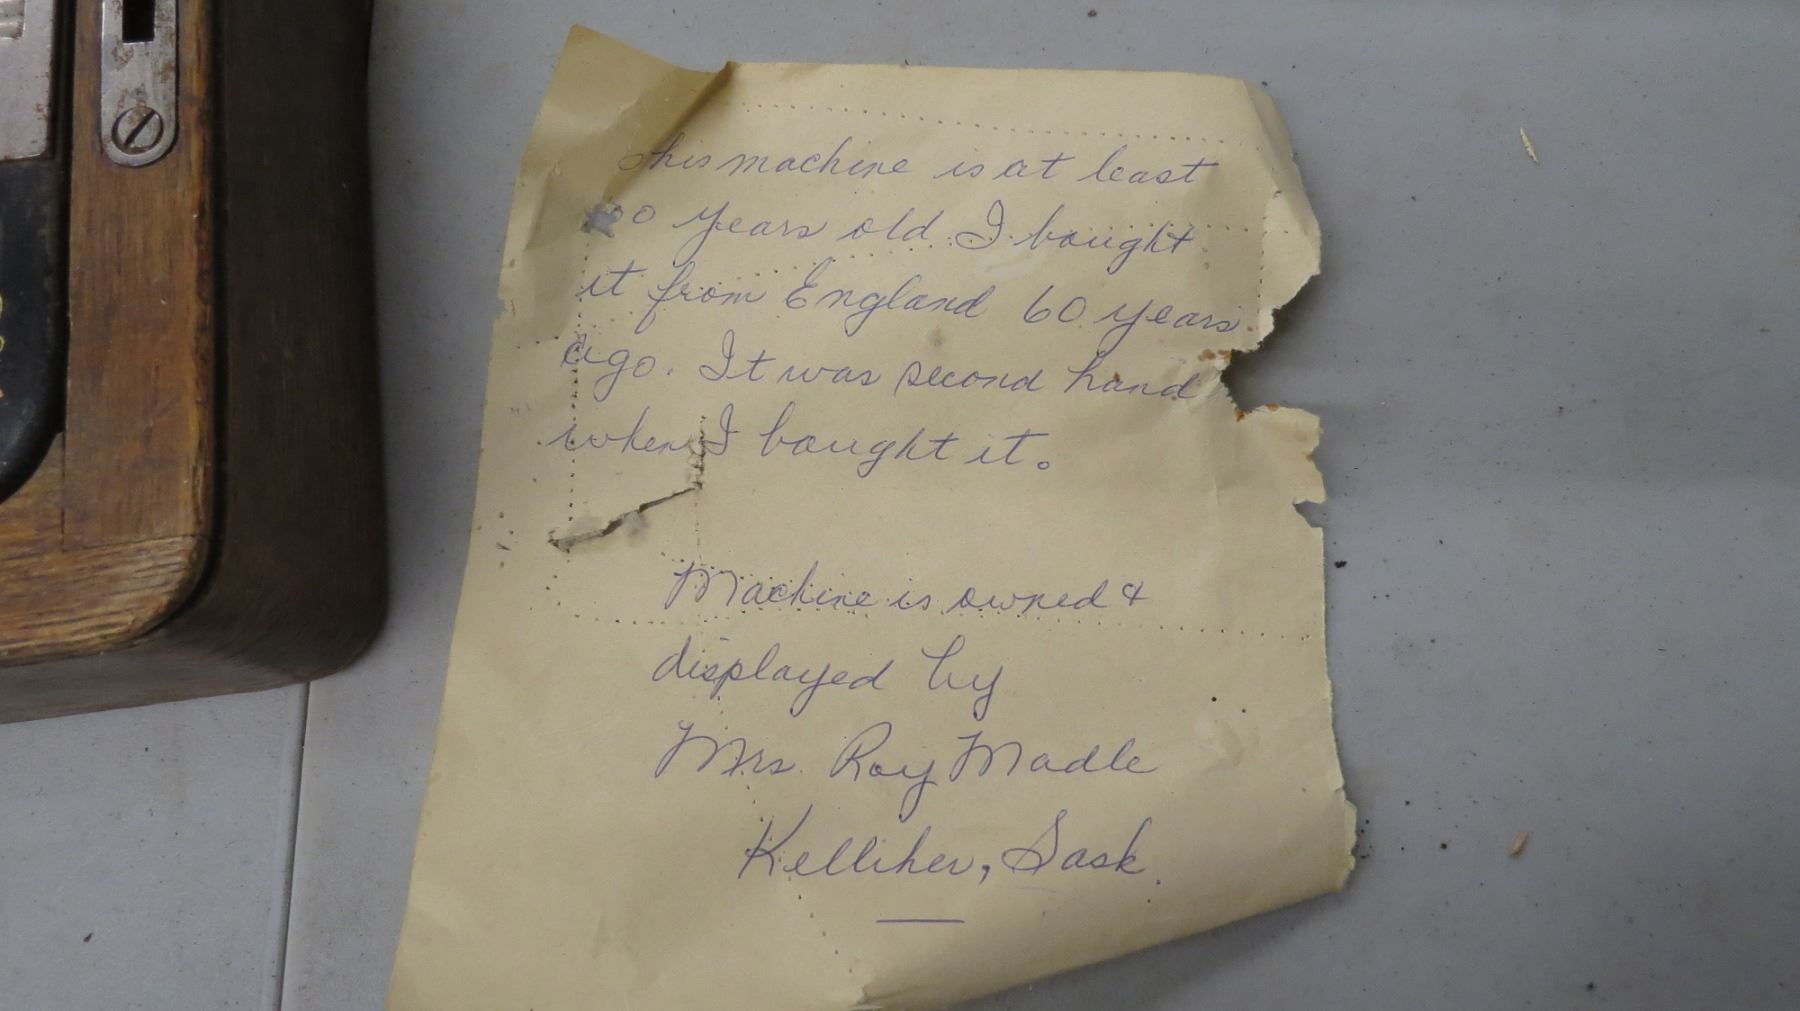 This machine is at least
years old. I bought
it from England 60 years
ago. It was second hand
when I bought it.
Machine is owned &
displayed by
Mrs. Roy Madle
Kelliher, Sask.